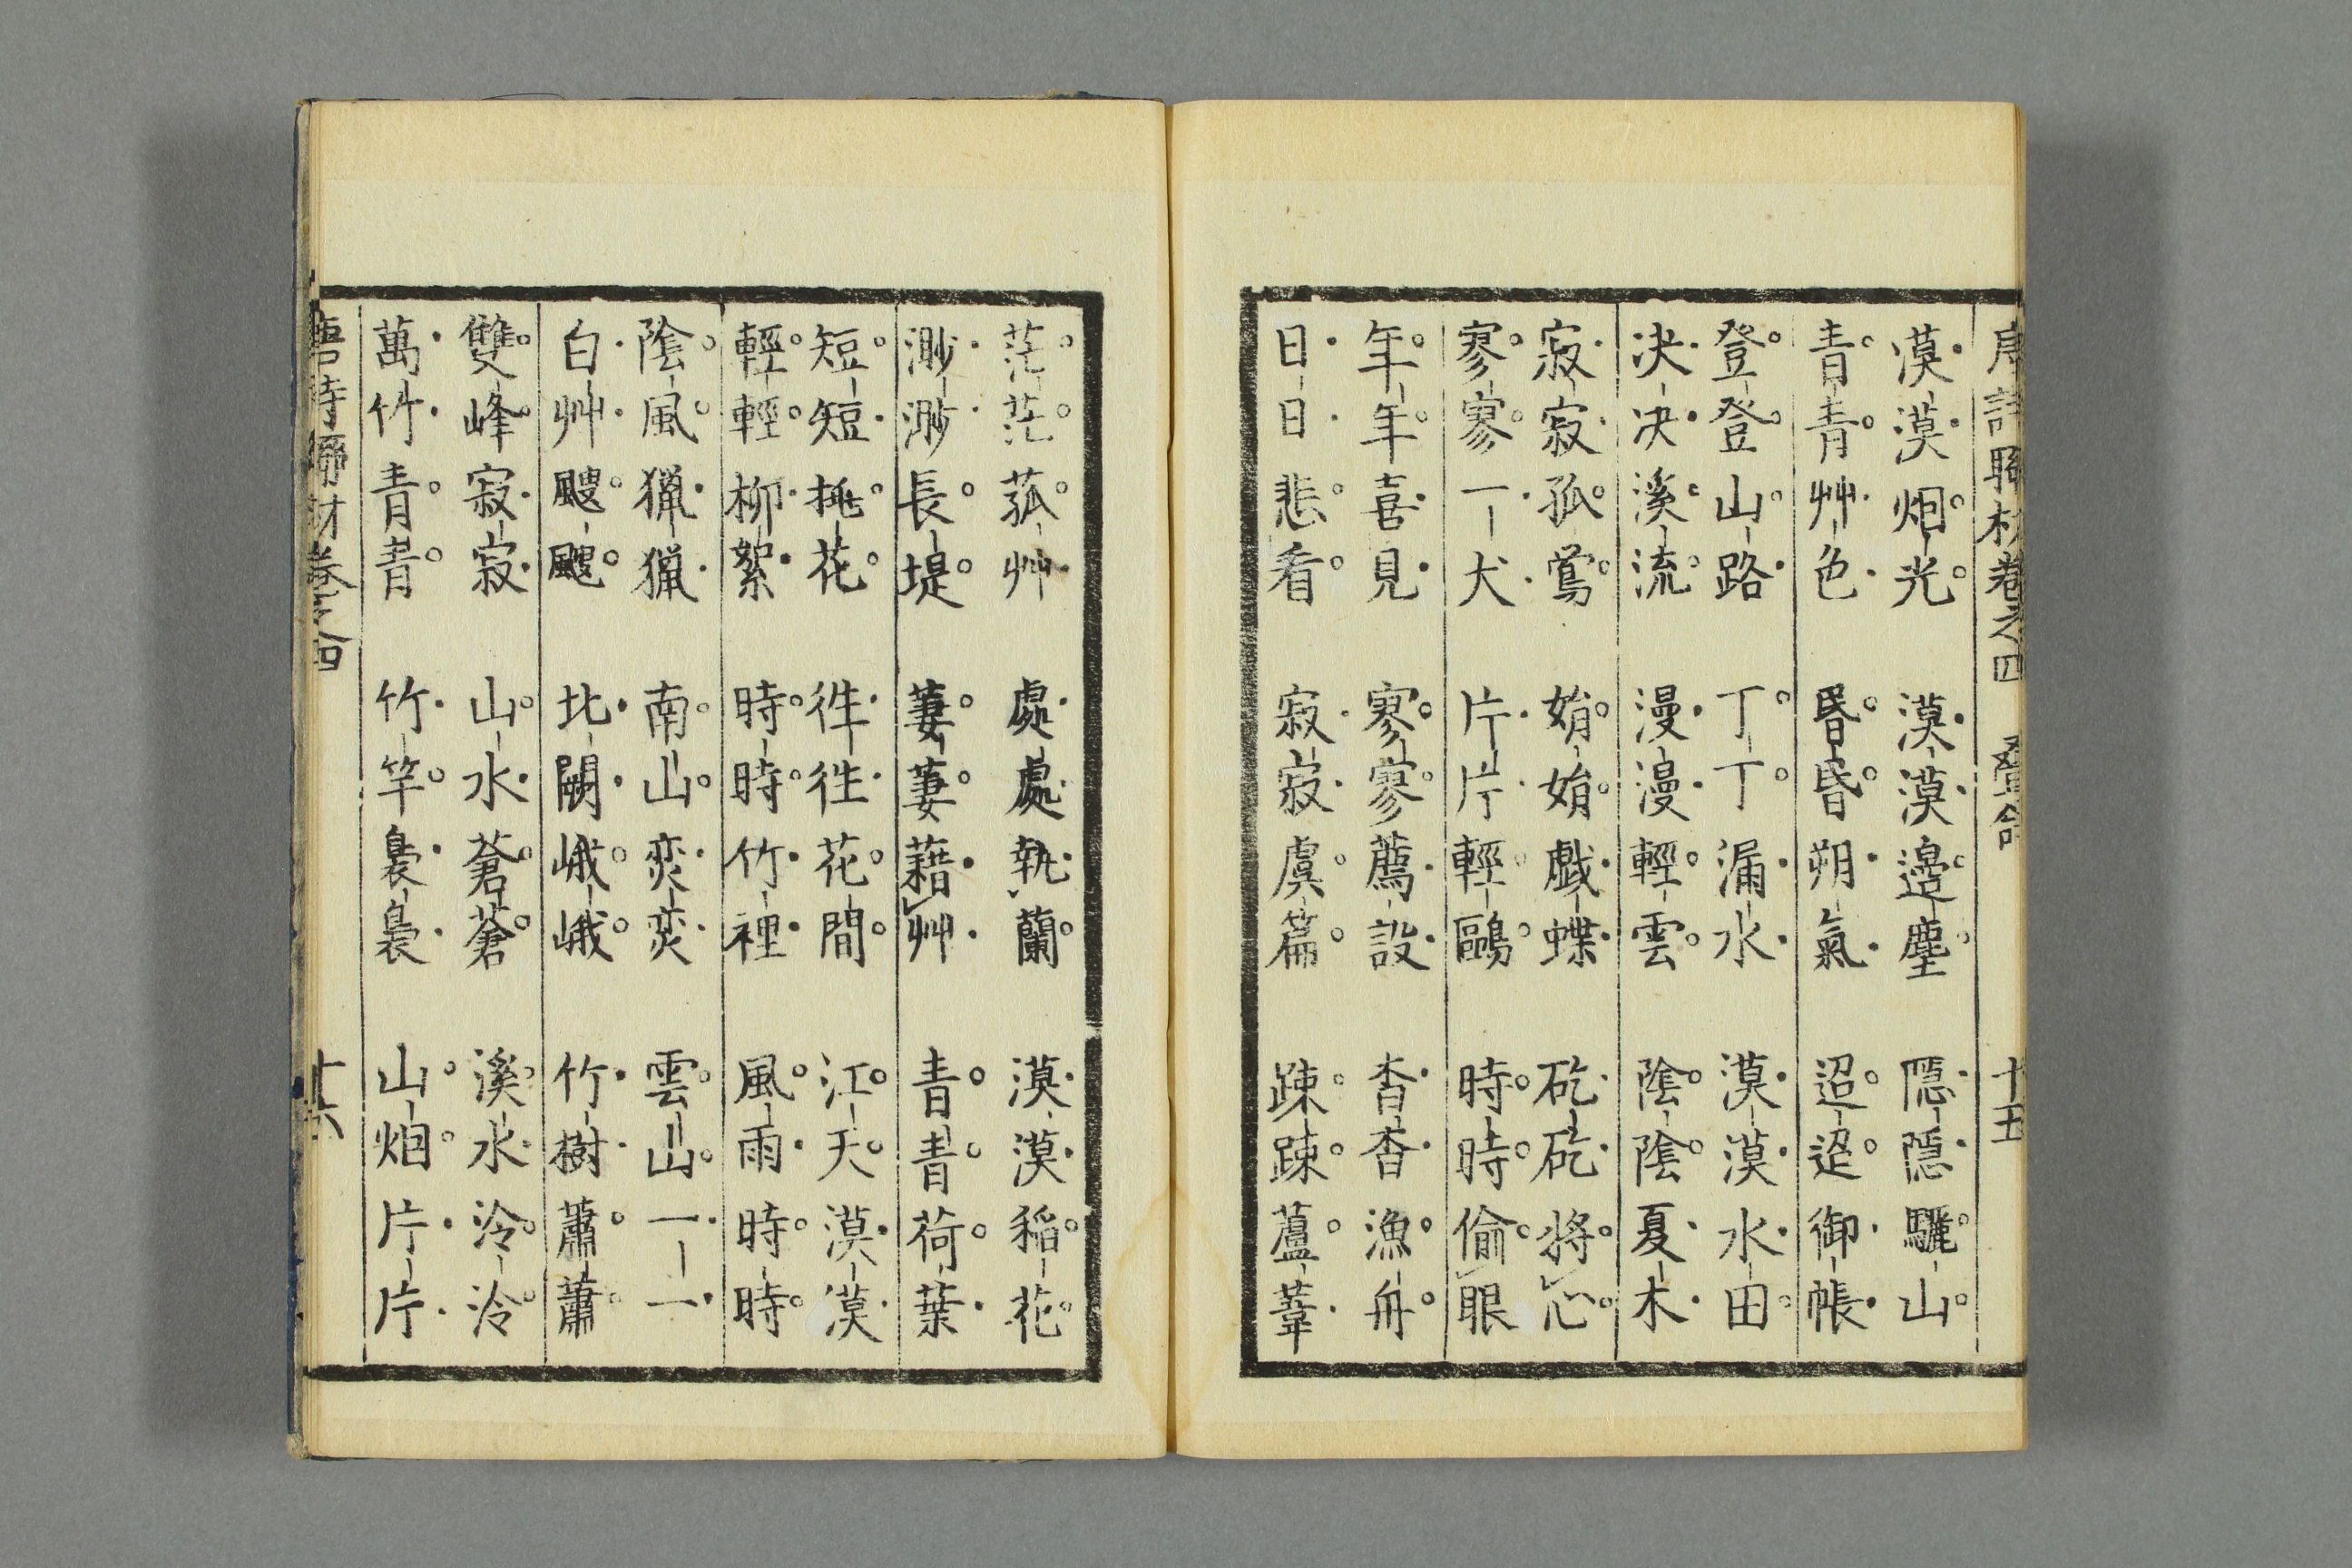 唐詩聯材卷之四 疊句 十五
漠漠烟光 漠漠邊塵 隱隱驪山
青青艸色 昏昏朔氣 迢迢御帳
登登山路 丁丁漏水 漠漠水田
决决溪流 漫漫輕雲 陰陰夏木
寂寂孤鶯 娟娟戯蝶 矻矻將心
寥寥一犬 片片輕鷗 時時偷眼
年年喜見 寥寥薦設 杳杳漁舟
日日悲看 寂寂虞篇 疎疎蘆葦
茫茫菰艸 處處執蘭 漠漠稻花
渺渺長堤 萋萋藉艸 青青荷葉
短短桃花 徃徃花間 江天漠漠
輕輕柳絮 時時竹裡 風雨時時
陰風獵獵 南山奕奕 雲山一一
白艸颼颼 北闕峨峨 竹樹蕭蕭
雙峰寂寂 山水蒼蒼 溪水泠泠
萬竹青青 竹竿裊裊 山烟片片
唐詩聯材卷之四 十六